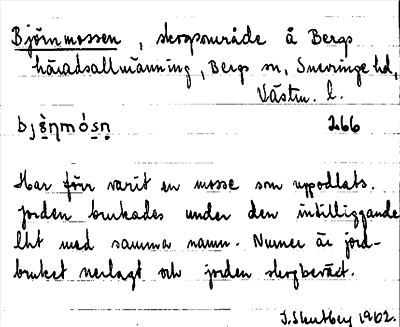 Björnmossen, skogsområde å Bergs
häradsallmänning, Bergs sn, Snevringe hd,
Västm. l.
bjὲ̣ηmós̥n̥ 266
Har förr varit en mosse som uppodlats.
Jorden brukades under den intilliggande
lht med samma namn. Numer är jord-
bruket nerlagt och jorden skogbeväxt.
1962.